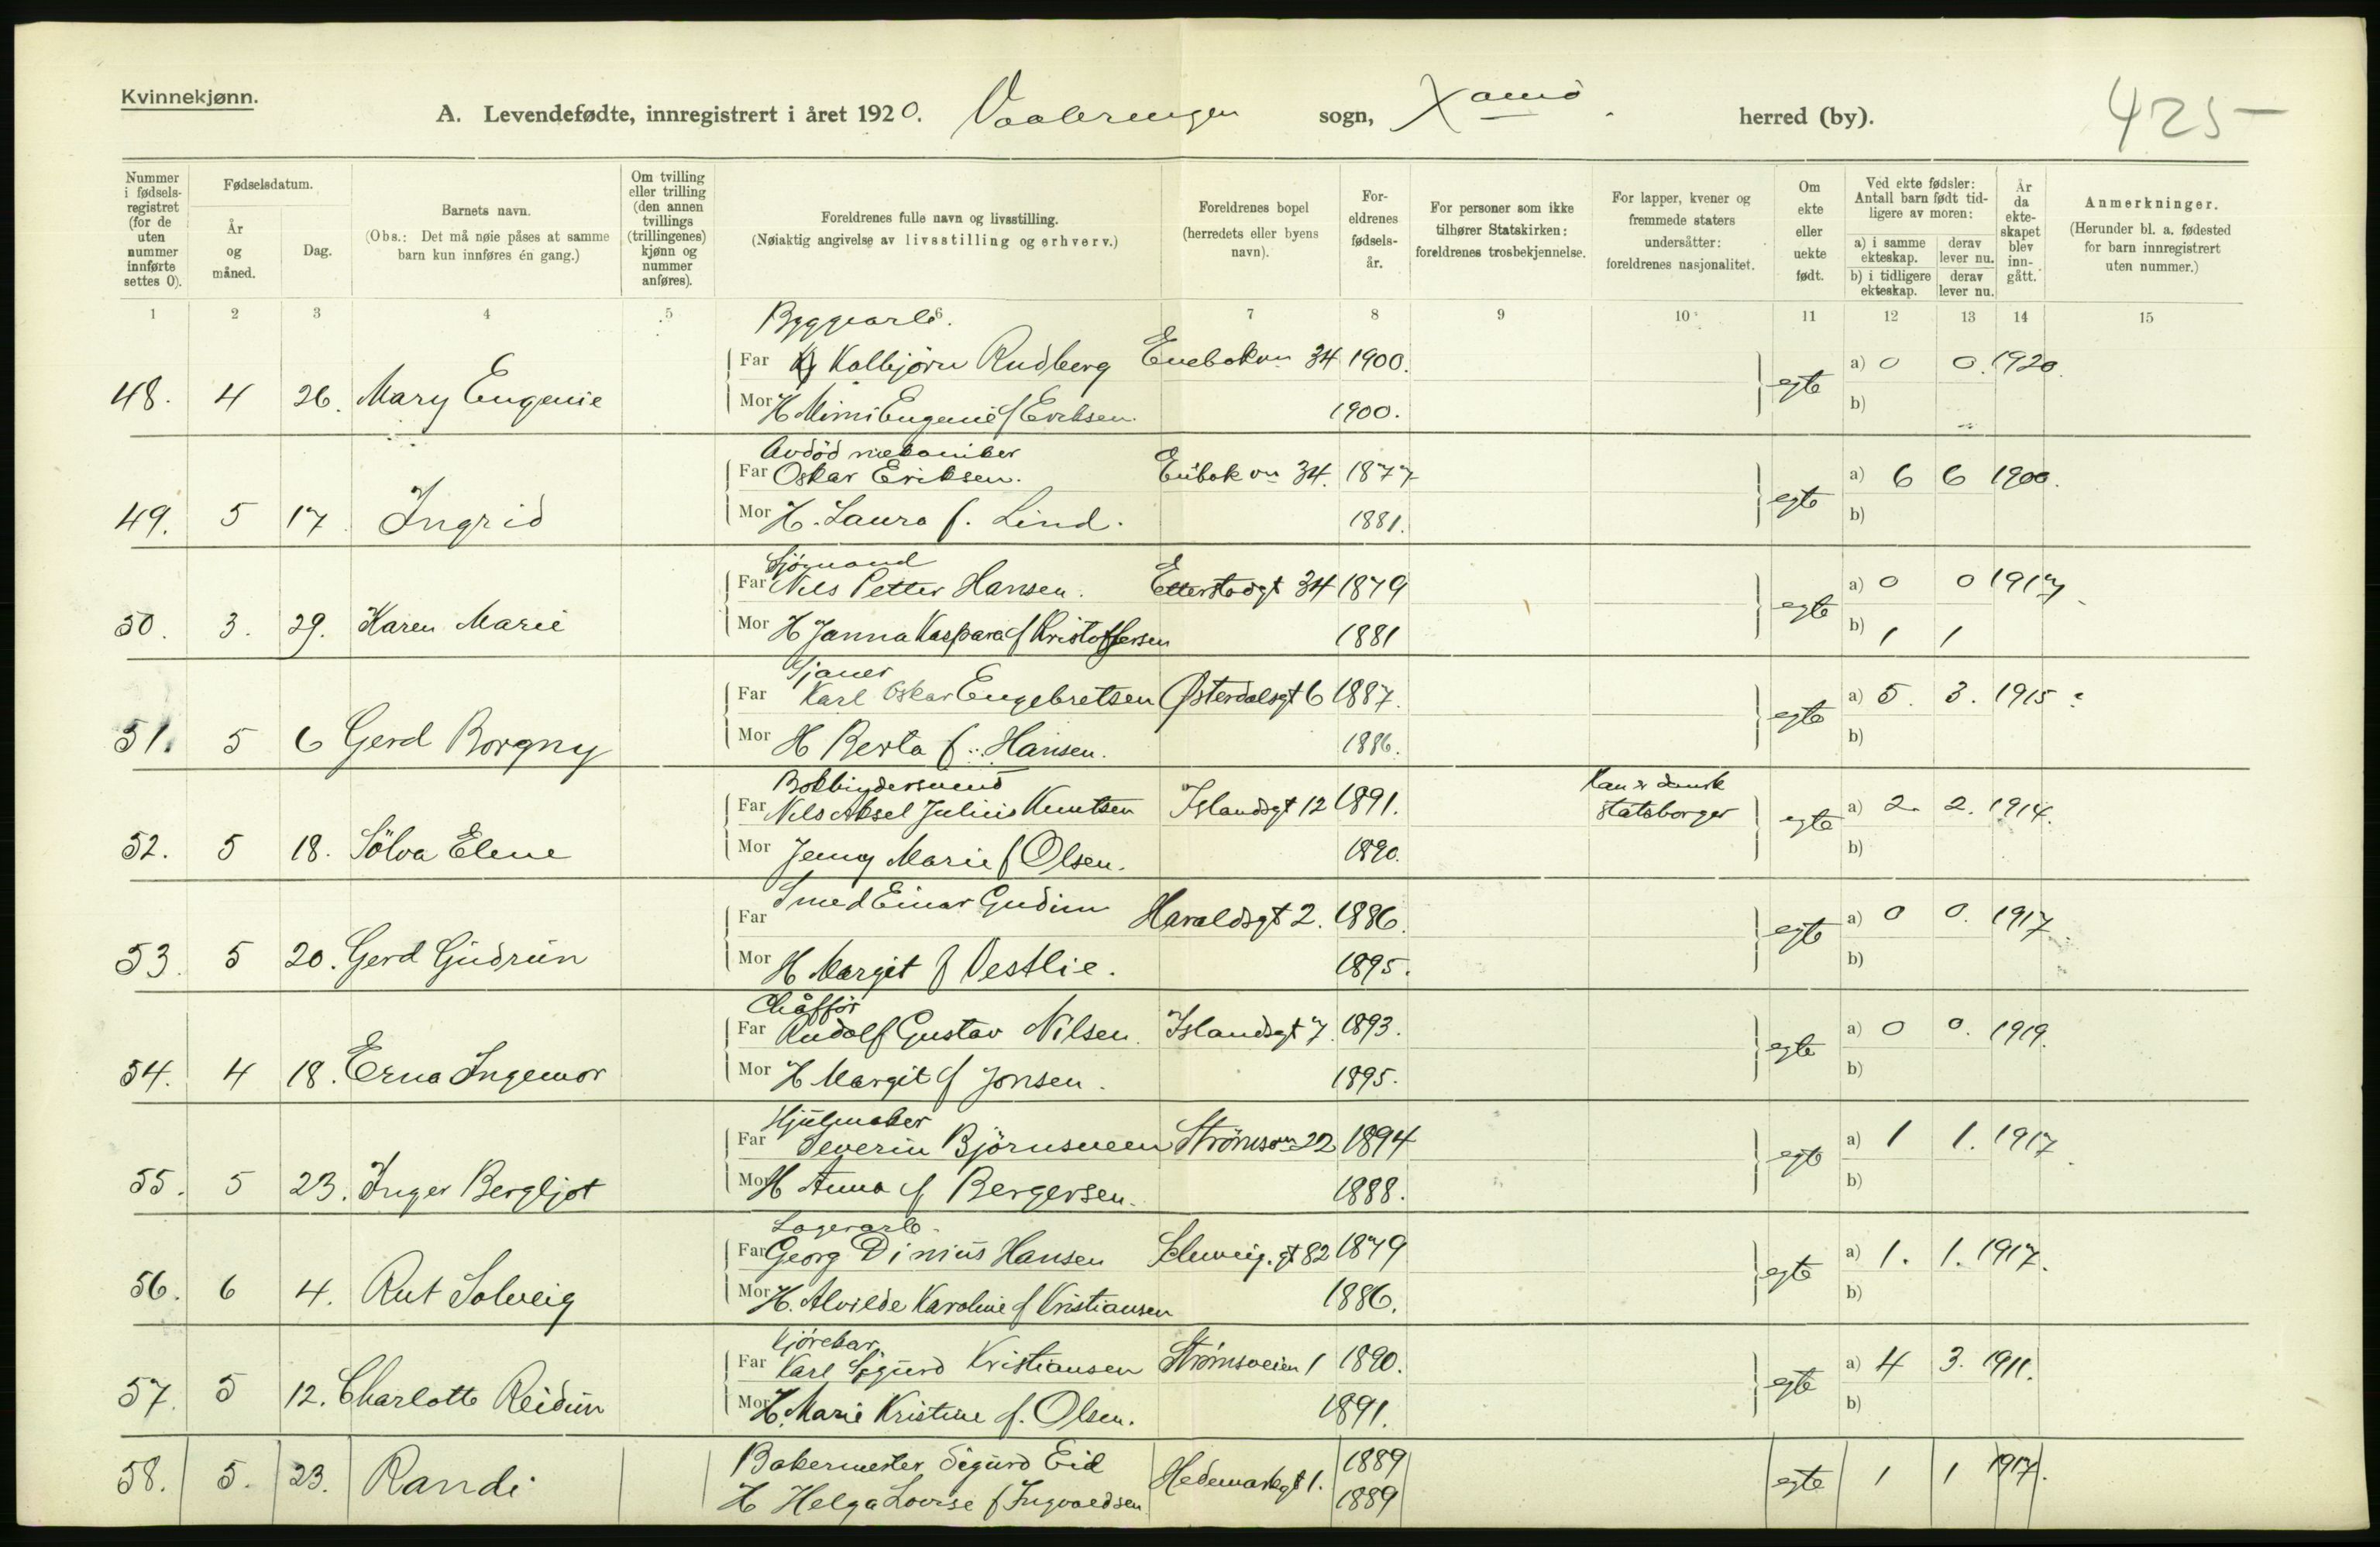 Kvinnekjønn.
A. Levendefødte, innregistrert i året 1920. Vaalerengen sogn, Xania herred (by).
425
Nummer i fødselsregistret (for de uten nummer innførte settes 0).
Fødselsdatum.
År og måned.
Dag.
Barnets navn.
(Obs.: Det må nøie påses at samme barn kun innføres én gang.)
Om tvilling eller trilling (den annen tvillings (trillingenes) kjønn og nummer anføres).
Foreldrenes fulle navn og livsstilling.
(Nøiaktig angivelse av livsstilling og erhverv.)
Foreldrenes bopel (herredets eller byens navn).
Foreldrenes fødselsår.
For personer som ikke tilhører Statskirken: foreldrenes trosbekjennelse.
For lapper, kvener og fremmede staters undersåtter: foreldrenes nasjonalitet.
Om ekte eller uekte født.
Ved ekte fødsler: Antall barn født tidligere av moren:
a) i samme ekteskap. derav lever nu.
b) i tidligere ekteskap. derav lever nu.
År da ekteskapet blev inngått.
Anmerkninger.
(Herunder bl. a. fødested for barn innregistrert uten nummer.)
1 2 3 4 5 6 7 8 9 10 11 12 13 14 15
Byggearb.
Far Kolbjörn Rudberg Enebakvn 34 1900. a) 0 0. 1920.
48. 4 26. Mary Eugenie egte
Mor H Mimi Eugenie f Eriksen. 1900. b)
Avdöd mekaniker
Far Oskar Eriksen. Enebakvn 34. 1877 a) 6 6 1900.
49. 5 17 Ingrid egte
Mor H. Laura f. Lind. 1881. b)
Sjömand
Far Nils Petter Hansen. Etterstadgt 34 1879 a) 0 0 1917
50. 3. 29. Karen Marie egte
Mor H Janna Kaspara f Kristoffersen 1881 b) 1 1
Far Karl Oskar Engebretsen Østerdalsgt 6 1887. a) 5. 3. 1915
51. 5 6 Gerd Borgny egte
Mor H Berta f. Hansen. 1886. b)
Bokbindersvend
Far Nils Aksel Julius Knutsen Islandsgt 12 1891. Han er dansk statsborger a) 2. 2. 1914.
52. 5 18. Sölva Elene egte
Mor Jenny Marie f Olsen. 1890. b)
Far Smed Einar Gudim Haraldsgt 2. 1886. a) 0 0. 1917
53. 5 20. Gerd Gudrun egte
Mor H Margit f Vestlie. 1895. b)
Chafför
Far Rudolf Gustav Nilsen. Islandsgt 7. 1893. a) 0 0. 1919.
54. 4 18. Erna Ingemor egte
Mor H Margit f Jonsen. 1895. b)
Hjulmaker
Far Severin Björnsveen Strömsvn 22 1894 a) 1 1. 1917
55. 5 23. Inger Bergljot egte
Mor H Anna f Bergersen. 1888. b)
Lagerarb.
Far Georg Dinius Hansen Schweig.gt 82 1879 a) 1. 1. 1917.
56. 6 4. Rut Solveig egte
Mor H. Alvilde Karoline f Kristiansen 1886. b)
Kjörekar
Far Karl Sigurd Kristiansen Strömsveien 1 1890. a) 4 3. 1911.
57. 5 12. Charlotte Reidun egte
Mor H. Marie Kristine f. Olsen. 1891. b)
Bakermester Sigurd Eid 1889
58. 5. 23. Randi Hedemarksgt 1. egte 1 1 1917.
H Helga Lovise f Ingvaldsen 1889